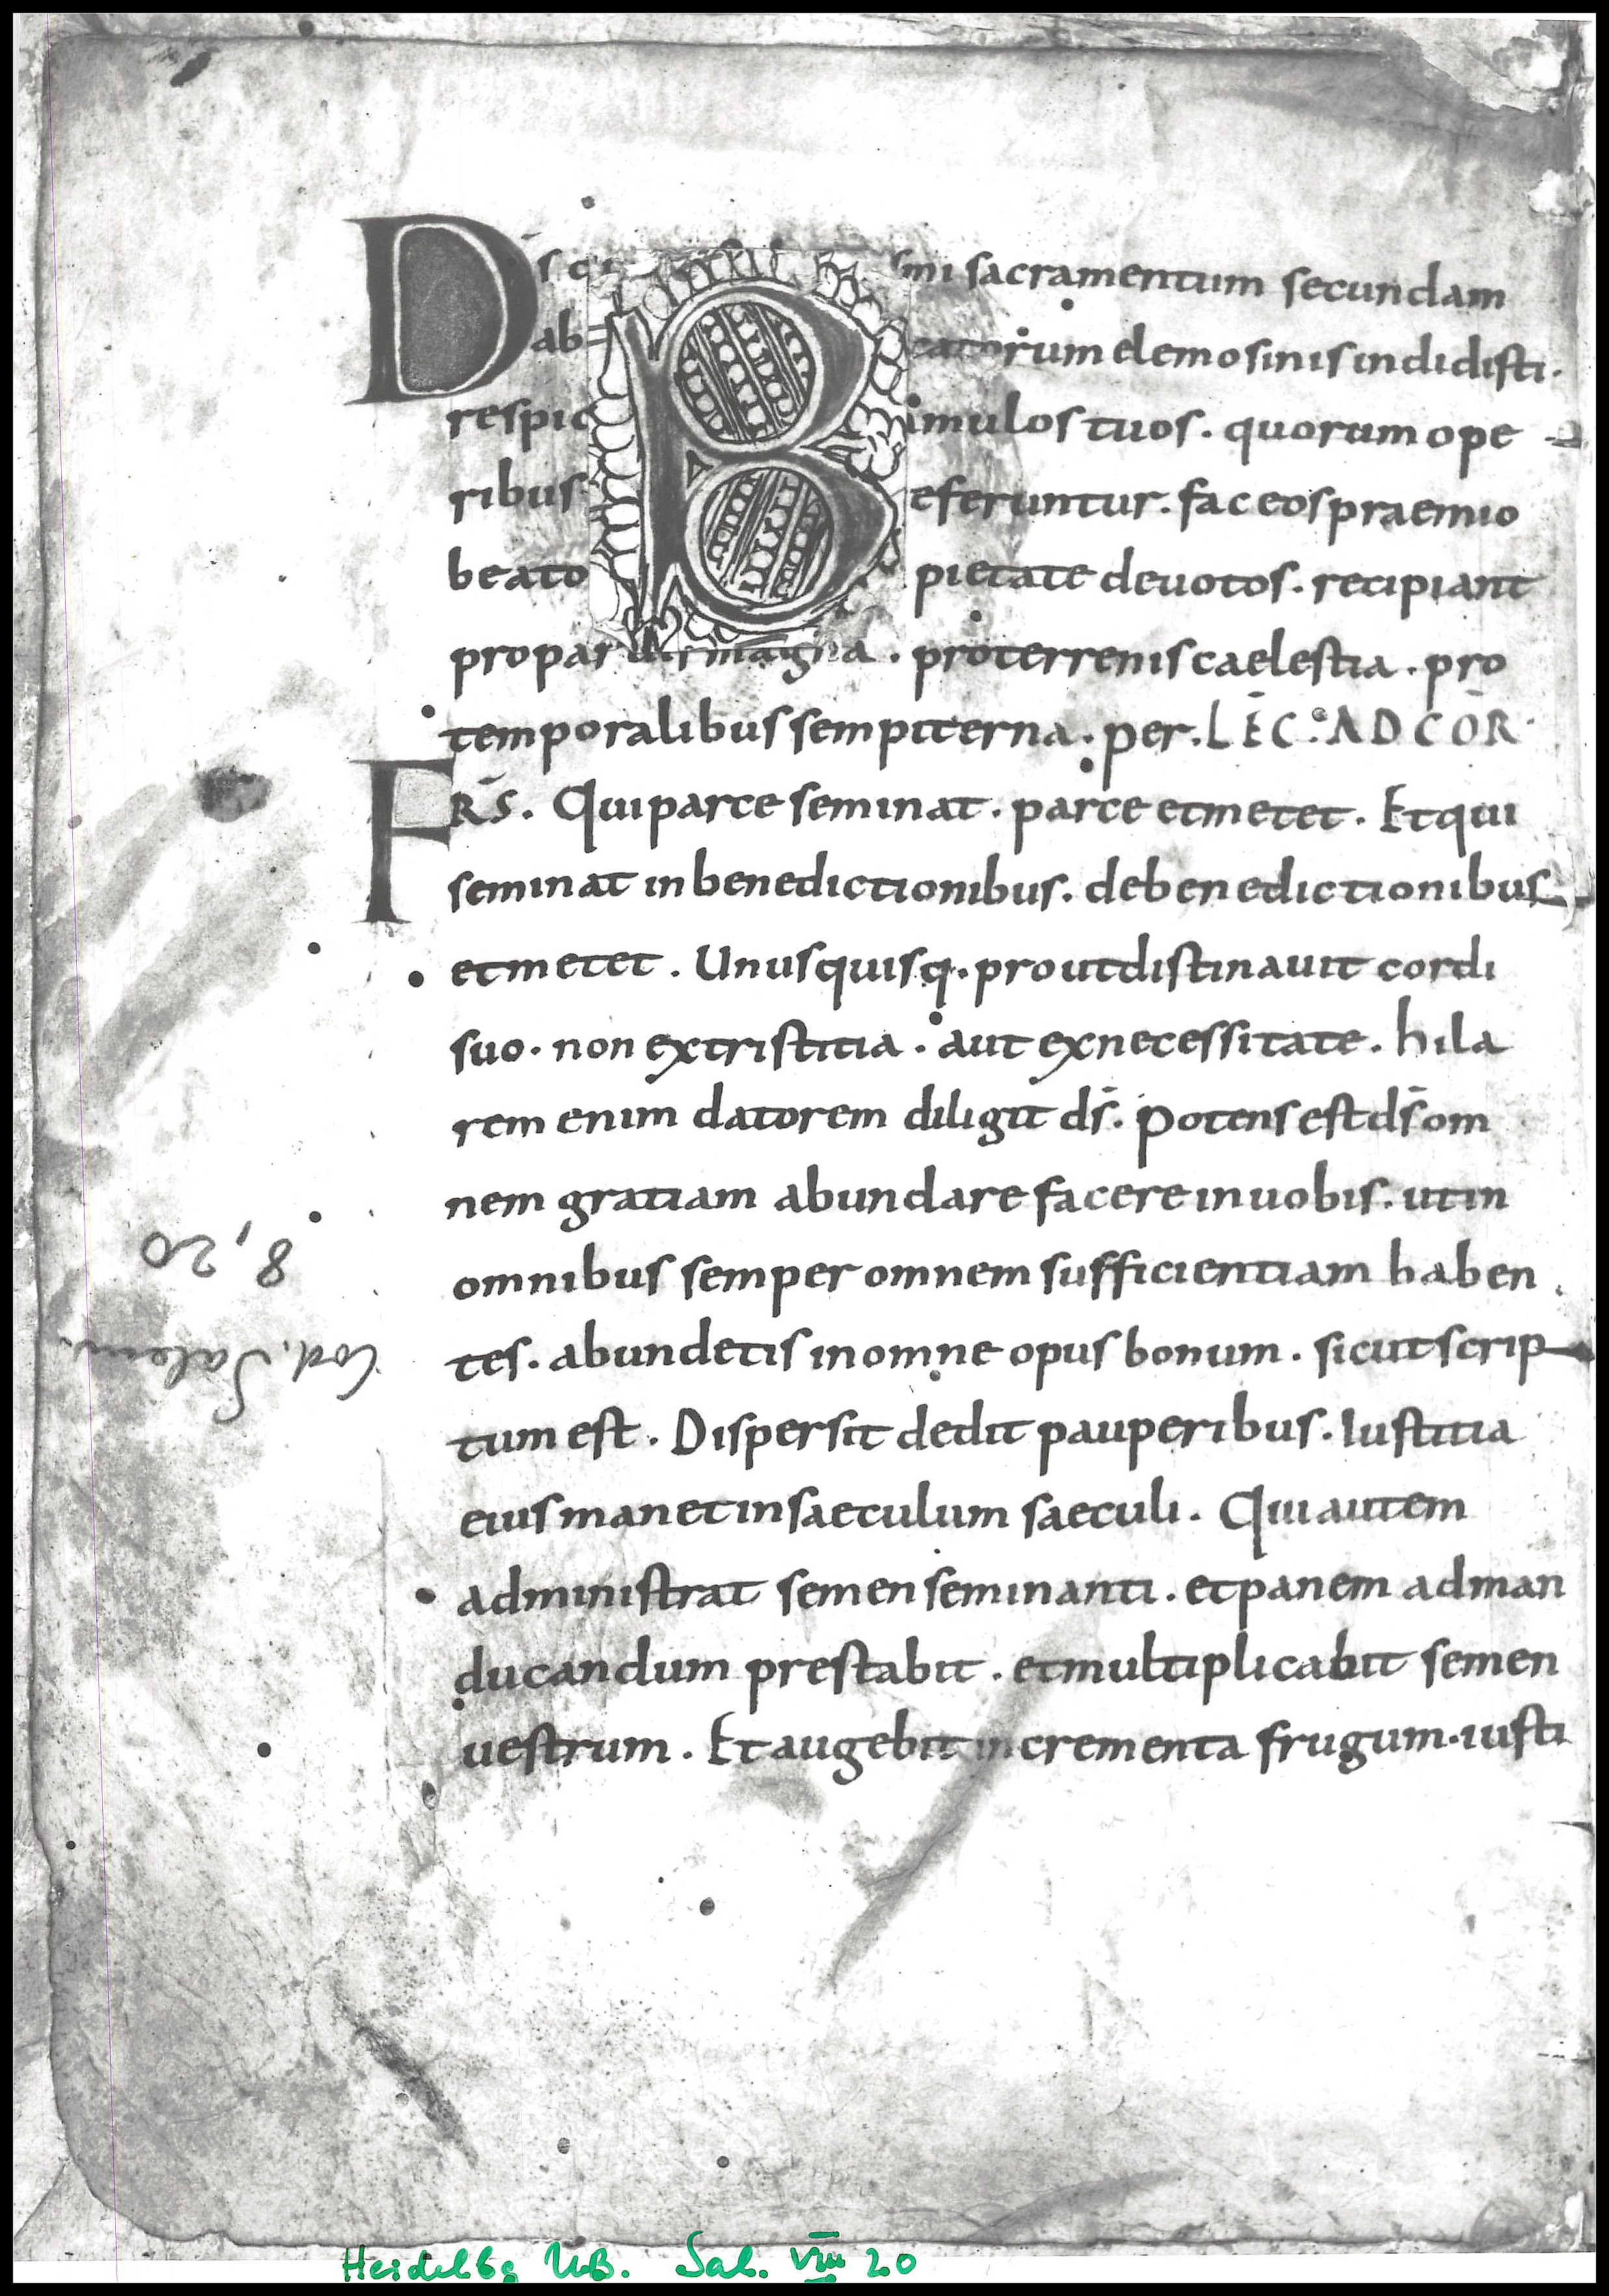 D̄s q smi sacramentum secundam
ab catorum elemosinis indidisti.
respic imulos tuos. quorum ope
ribus eferuntur. fac eos praemio
beato pietate deuotos. recipiant
pro par magna. pro terrenis caelestia. pro
temporalibus sempiterna. per. LEC̄. AD COR̄
FRS̄. Qui parce seminat. parce et metet. Et qui
seminat in benedictionibus. de benedictionibus
et metet. Unusquisq. prout distinauit cordi
suo. non ex tristitia. aut ex necessitate. hila
rem enim datorem diligit ds̄. Potens est ds̄ om
nem gratiam abundare facere in uobis. ut in
omnibus semper omnem sufficientiam haben
tes. abundetis in omne opus bonum. sicut scrip
tum est. Dispersit dedit pauperibus. Iustitia
eius manet in saeculum saeculi. Qui autem
administrat semen seminanti. et panem ad man
ducandum prestabit. et multiplicabit semen
uestrum. Et augebit incrementa frugum. iusti
Cod. Salem.
8,20
Heidelbg UB. Sal. VIII 20